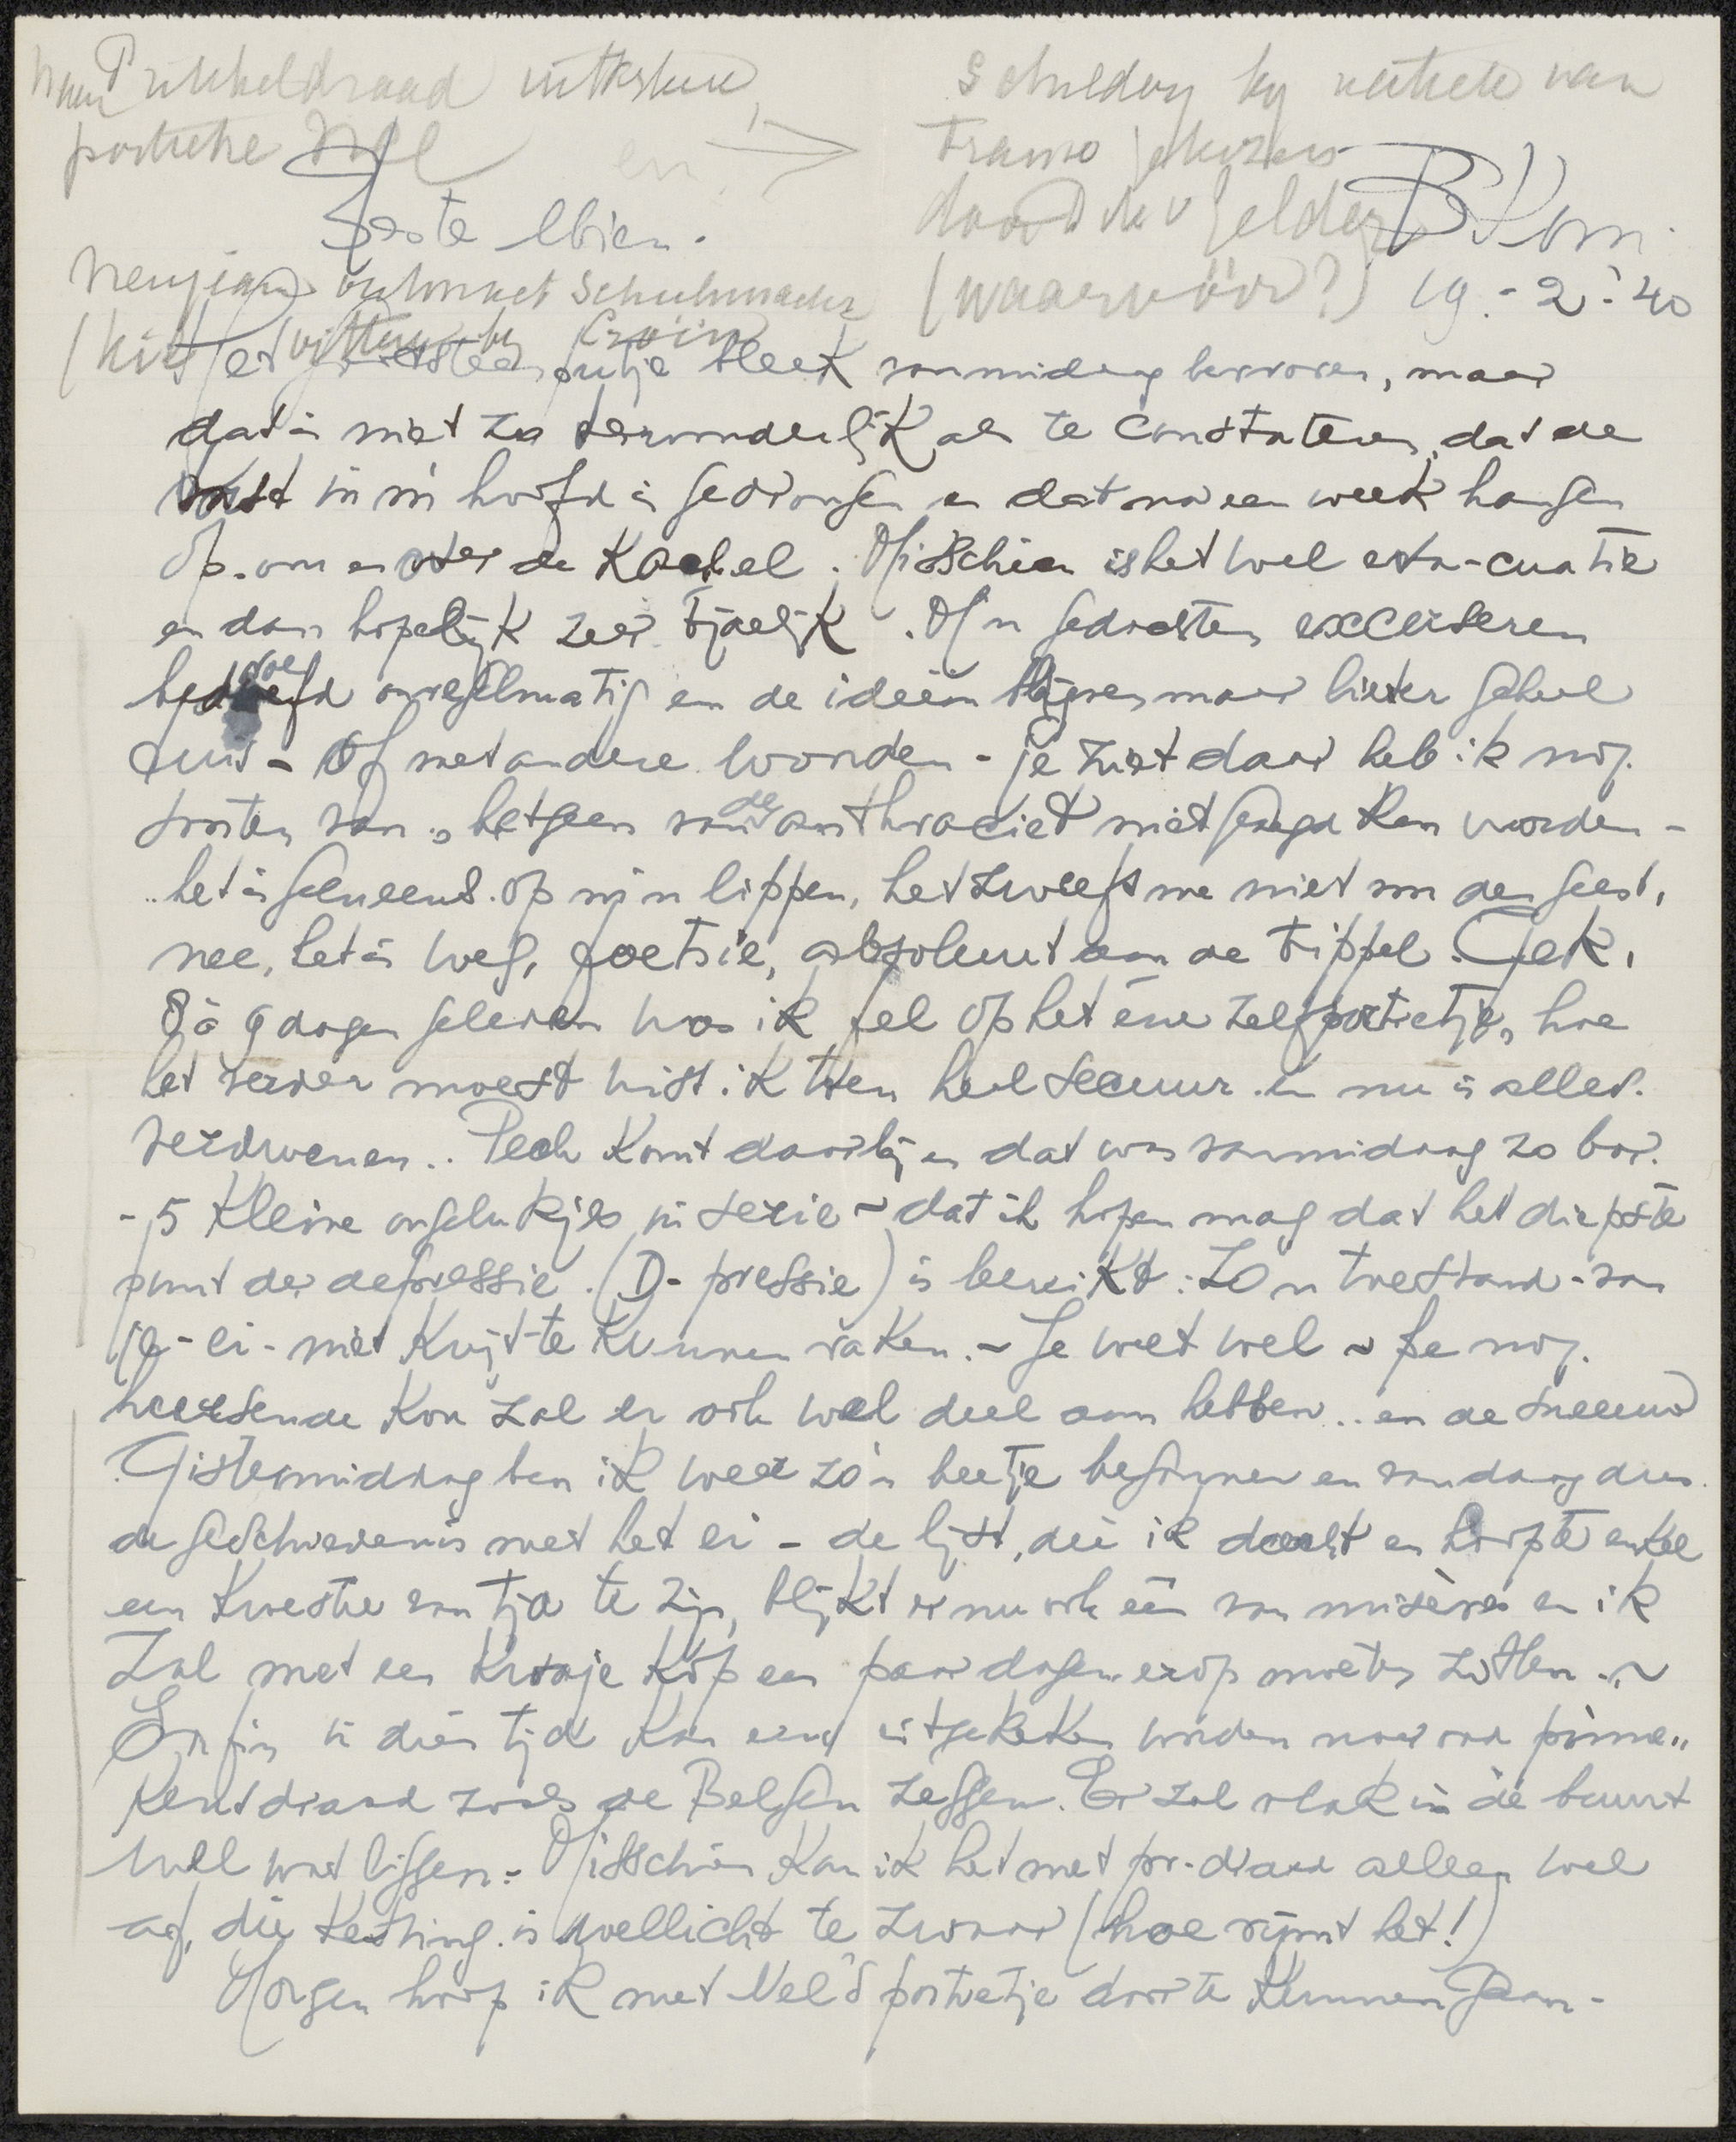 Prikkeldraad
portretje Nel
en
Schilderij bij kritiek van
(waarvóór?)
B Kom.
19-2-'40
Beste Ebien.
Het putje bleek vanmiddag bevroren, maar
dat is niet zo verwonderlijk als te constateren, dat de
vorst in m'n hoofd is gedrongen en dat na een week hangen
op, om en over de Kachel. Misschien is het wel eva-cuatie
en dan hopelijk zeer tijdelijk. M'n gedachten exerceren
bedroefd onregelmatig en de ideeën blijven maar liever geheel
thuis - Of met andere woorden - je ziet daar heb ik nog
soorten van, hetgeen van de anthraciet niet gezegd kan worden -
het is geeneens op mijn lippen, het zweeft me niet om den geest,
nee, het is weg, foetsie, absoluut aan de trippel. Gek,
8 à 9 dagen geleden was ik fel op het éne zelfportretje, hoe
het verder moest wist ik toen heel secuur en nu is alles
verdwenen.. Pech komt daarbij en dat was vanmiddag zo bar.
- 5 Kleine ongelukjes in serie - dat ik hopen mag dat het diepste
punt der depressie (D-pressie) is bereikt: Zo'n toestand van
je-ei-niet kwijt te kunnen raken. - Je weet wel - De nog
heersende Kou zal er ook wel deel aan hebben.. en de sneeuw
Gistermiddag ben ik weer zo'n beetje begonnen en vandaag dus
de geschiedenis met het ei - de lijst, die ik dacht en hoopte enkel
een kwestie van tijd te zijn, blijkt er nu ook één van misère en ik
zal met een krasje kop een paar dagen erop moeten zitten. ~
Enfin in dien tijd kan eens uitgekeken worden naar dan pinne"
kentdraad zoals de Belgen zeggen. Er zal vlak in de buurt
wel wat liggen. - Misschien kan ik het met pr-draad alleen wel
af, die Ketting is wellicht te zwaar (hoe rijmt het!)
Morgen hoop ik met Nel's portretje door te kunnen gaan -